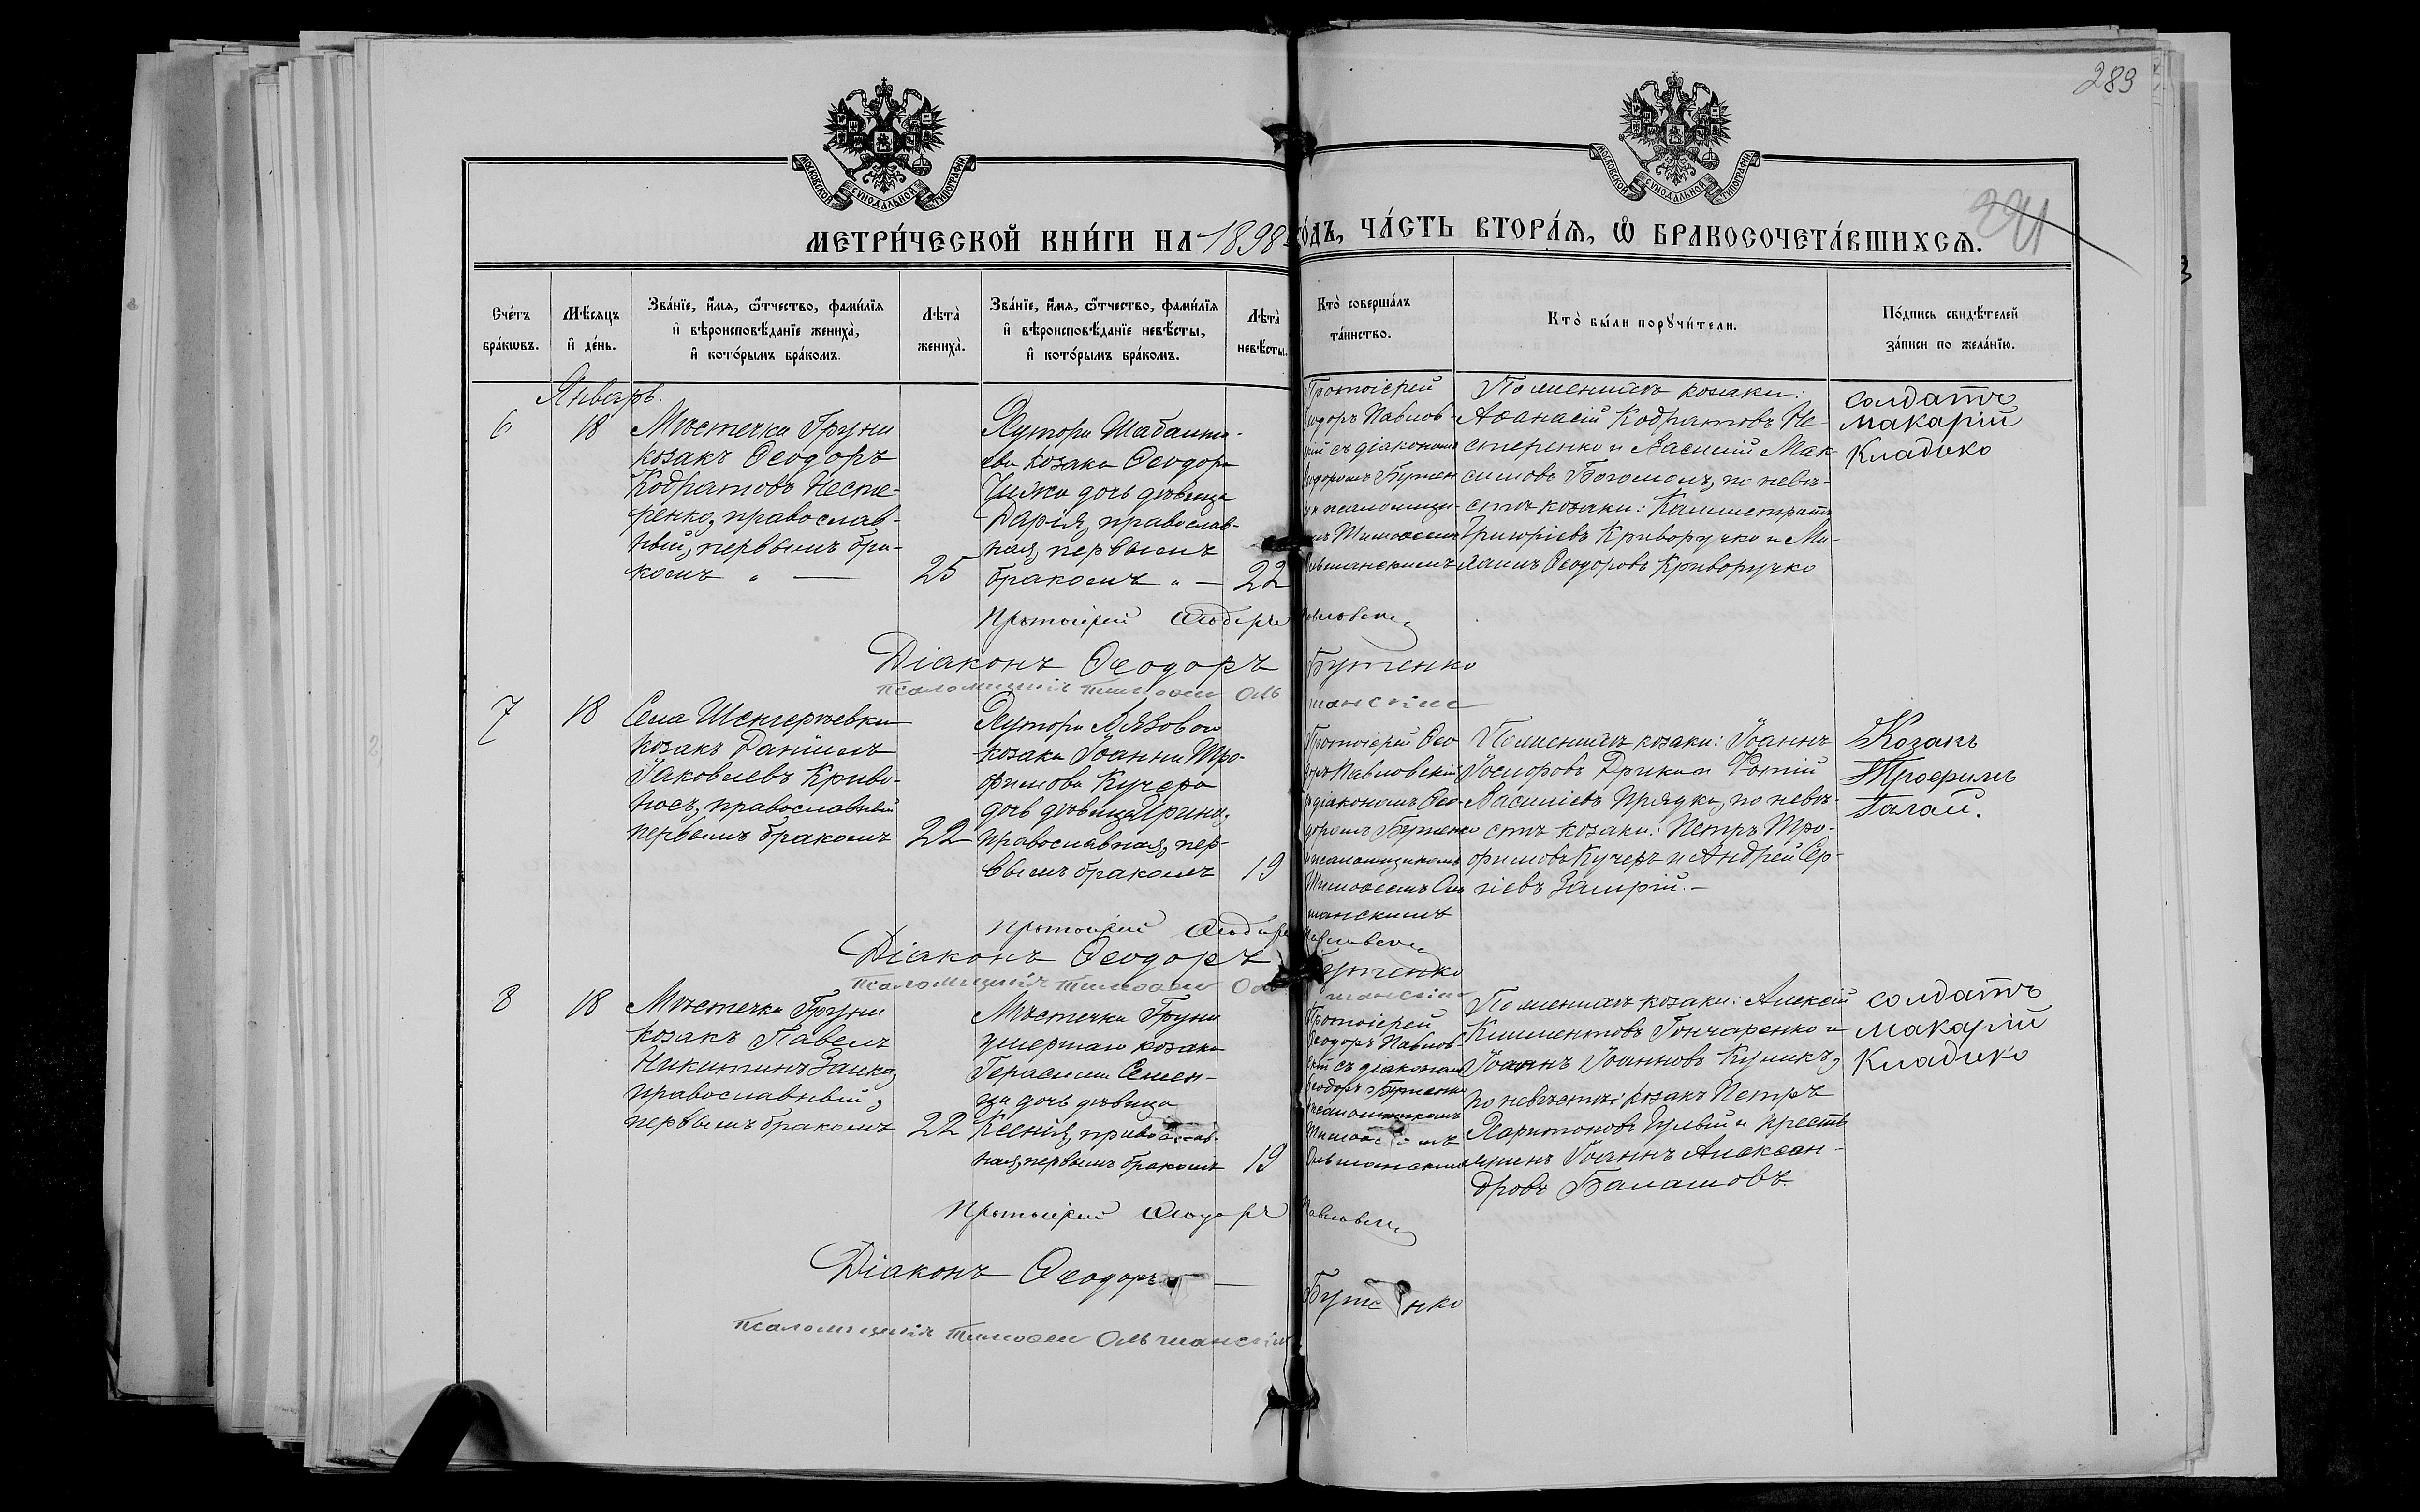 289
291
МОСКОВСКОЙ СѴНОДАЛЬНОЙ ТИПОГРАФІИ
МОСКОВСКОЙ СѴНОДАЛЬНОЙ ТИПОГРАФІИ
МЕТРИ́ЧЕСКОЙ КНИ́ГИ НА 1898 го́дъ, ЧА́СТЬ ВТОРА́Я, Ѿ БРАКОСОЧЕТА́ВШИХСѦ.
Сче́тъ
бра́кωвъ.
Мѣ́сяцъ
и҆ де́нь.
Зва́нїе, и҆́мя, ѻ҆́тчество, фами́лїя
и҆ вѣроисповѣ́данїе жениха̀,
и҆ кото́рымъ бра́комъ.
Лѣта̀
жениха̀.
Зва́нїе, и҆́мя, ѻ҆́тчество, фами́лїя
и҆ вѣроисповѣ́данїе невѣ́сты,
и҆ кото́рымъ бра́комъ.
Лѣта̀
невѣ́сты.
Кто̀ соверша́лъ
та́инство.
Кто̀ бы́ли порꙋчи́тели.
По́дпись свидѣ́телей
за́писи по жела́нїю.
Январь.
6
18
Мѣстечка Груни
козакъ Ѳеодоръ
Кодратовъ Несте-
ренко, православ-
ный, первымъ бра-
комъ " —
25
Хутора Шабалта-
ева козака Ѳеодора
дочь дѣвица
Дарія, православ-
ная, первымъ
бракомъ " —
22
Протоіерей
Ѳеодоръ Павлов-
скій съ діакономъ
Ѳеодоромъ Бутен
и псаломщи-
мъ Тимоѳеемъ
Ольшанскимъ
По женихѣ козаки:
Аѳанасій Кодратовъ Не-
стеренко и Василій Мак-
симовъ Богомолъ, по невѣ-
стѣ козаки: Каллистратъ
Григоріевъ Криворучко и Ми-
хаилъ Ѳеодоровъ Криворучко
солдатъ
макарій
Кладико
Протоіерей Ѳеодоръ Павловскі
Діаконъ Ѳеодоръ Бутенко
Псаломщикъ Тимоѳеи Ольшанскіи
7
18
Села Шенгеріевки
козакъ Даніилъ
Іаковлевъ Криво-
носъ, православный
первымъ бракомъ
22
Хутора Лязовой
козака Іоанна Тро-
фимова Кучера
дочь дѣвица Ирина,
православная, пер-
вымъ бракомъ
19
Протоіерей Ѳео
доръ Павловскій
съ діакономъ Ѳео-
доромъ Бутенко
и псаломщикомъ
Тимоѳеемъ Оль
шанскимъ
По женихѣ козаки: Іоаннъ
Іосифовъ Дрика и Фотій
Василіевъ Прядка, по невѣ-
стѣ козаки: Петръ Тро-
фимовъ Кучеръ и Андрей Сер-
гіевъ Замрій. —
Козакъ
Трофимъ
Галай.
Протоіерей Ѳеодоръ Павловскі
Діаконъ Ѳеодоръ Бутенко
Псаломщикъ Тимоѳеи Ольшанскіи
8
18
Мѣстечка Груни
козакъ Павелъ
Никитинъ Заика,
православный,
первымъ бракомъ
22
Мѣстечка Груни
умершаго козака
Герасима Семен-
ца дочь дѣвица
Ксенія, православ-
ная, первымъ бракомъ
19
Протоіерей
Ѳеодоръ Павлов-
скій съ діакономъ
Ѳеодоръ Бутенко
псаломщикомъ
Тимоѳеемъ
Ольшанскимъ
По женихѣ козаки: Алексій
Климентовъ Гончаренко и
Іоаннъ Іоанновъ Куликъ,
по невѣстѣ: козакъ Петръ
Харитоновъ и кресть
янинъ Іоаннъ Алексан-
дровъ Балашовъ.
солдатъ
макарій
Кладико
Протоіерей Ѳеодоръ Павловскі
Діаконъ Ѳеодоръ — Бутенко
Псаломщикъ Тимоѳеи Ольшанскіи